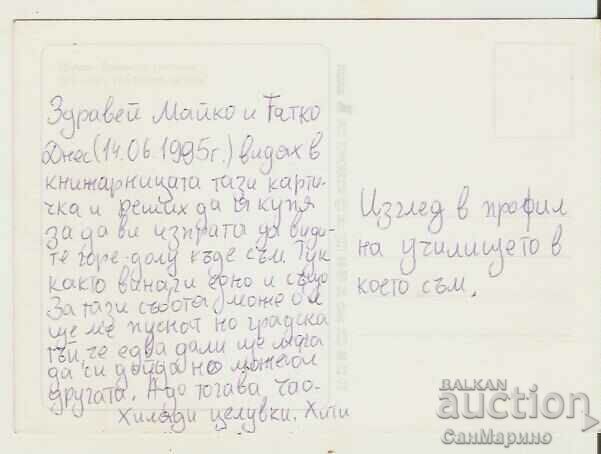 Здравей Майко и Татко
Днес (14.06.1995г.) видях в
книжарницата тази карти-
чка и реших да я купя
за да ви изпратя да види-
те горе-долу къде съм. Тук
както винаги едно и също
За тази събота може би
ще ме пуснат но градска
тъй че едва дали ще мога
да си дойда но може би
другата. А до тогава Чао-
Хиляди целувки,
Изглед в профил
на училището в
което съм.
БАЛКАН
auction
СанМарино